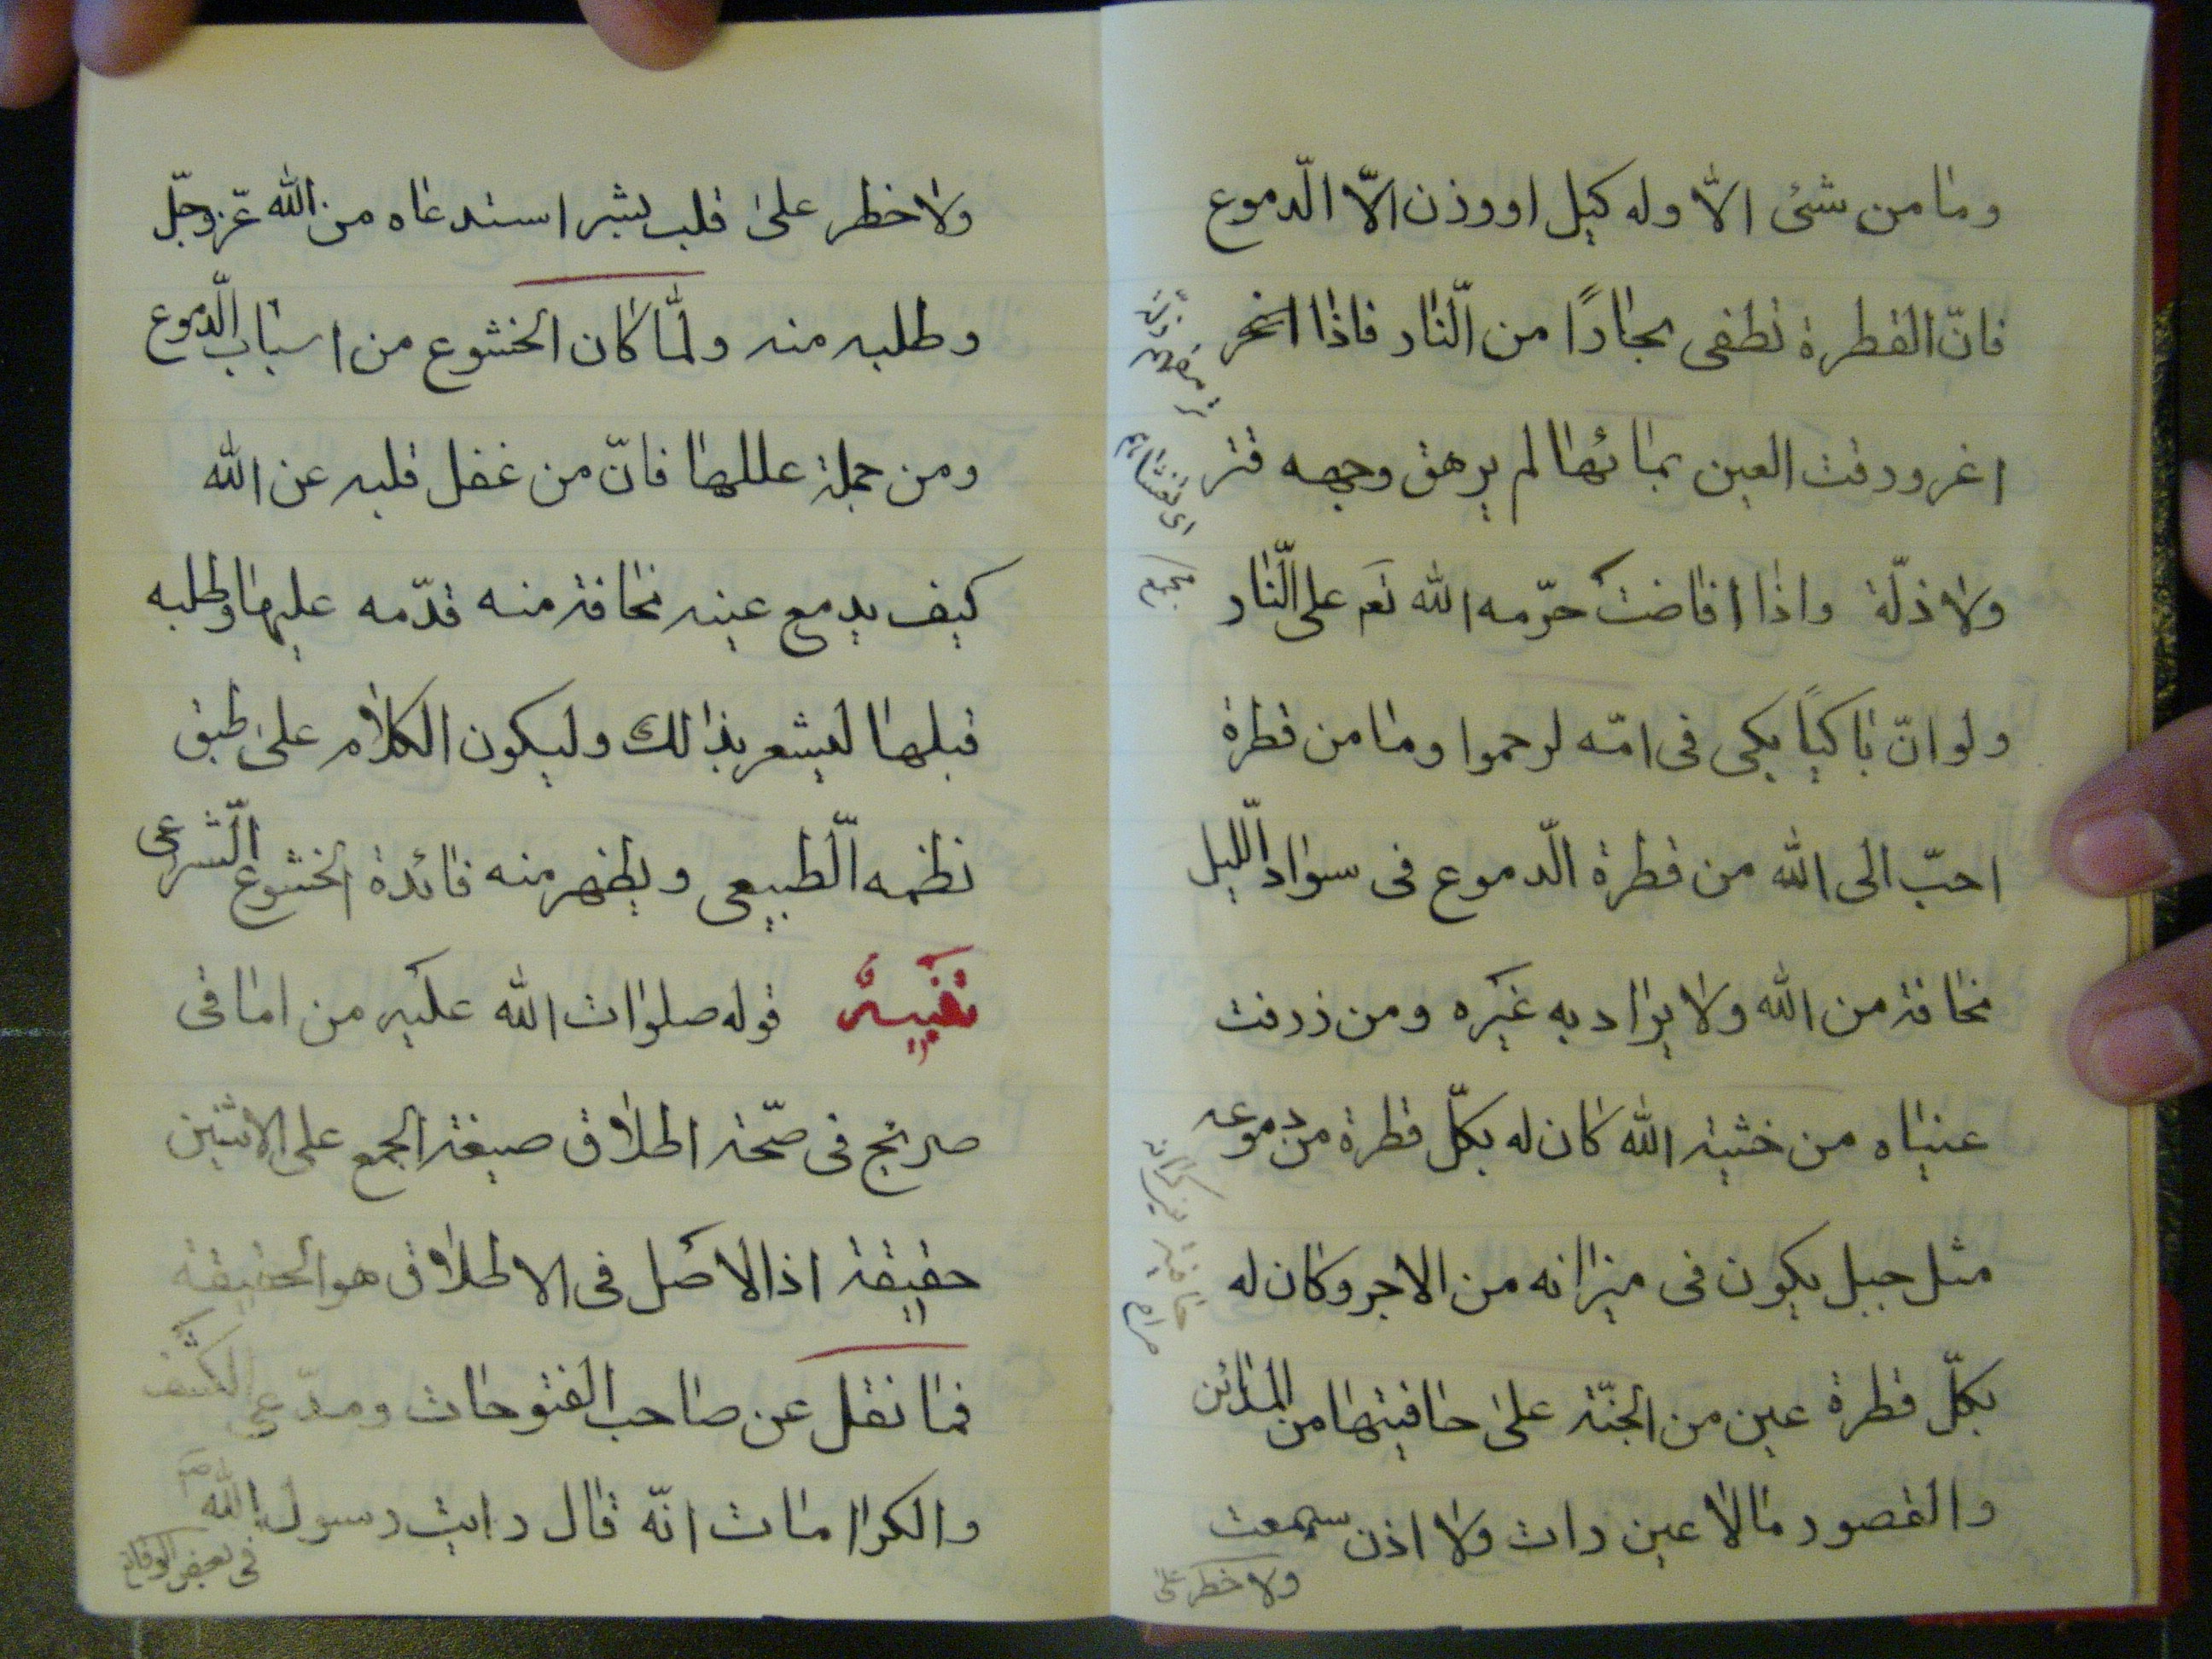 وما من شئ الّا وله كيل او وزن الّا الّدموع
فانّ القطرة تطفى بحاراً من الّنار فاذا
اغرورقت العين بمائها لم يرهق وجهه قتر
ولا ذلّة واذا افاضت حرّمه الله تعم على الّنار
ولو انّ باكياً يبكى فى امّه لرحموا وما من قطرة
احبّ الى الله من قطرة الّدموع فى سواد الّليل
مخافة من الله ولا يراد به غيره ومن ذرفت
عيناه من خشية الله كان له بكلّ قطرة من دموعه
مثل جبل يكون فى ميزانه من الاجر وكان له
بكلّ قطرة عين من الجنّة على حافيتها من المدائن
والقصور ما لا عين رات ولا اذن سمعت
ولا خطر على
اى تغشاه
مجمع
ولا خطر على قلب بشر استدعاه من الله عزّوجلّ
وطلبه منه ولمّا كان الخشوع من اسباب الّدموع
ومن جملة عللها فانّ من غفل قلبه عن الله
كيف يدمع عينه مخافة منه قدّمه عليها وطلبه
قبلها ليشعر بذالك وليكون الكلام على طبق
نظمه الّطبيعى ويظهر منه فائدة الخشوع الّشرعى
تنبيه قوله صلوات الله عليه من اماقى
صريح فى صحّة اطلاق صيغة الجمع على الاثنين
حقيقة اذ الاصل فى الاطلاق هو الحقيقة
فما نقل عن صاحب الفتوحات ومدّعى الكشف
والكرامات انّه قال رايت رسول الله ص
فى بعض الوقايع